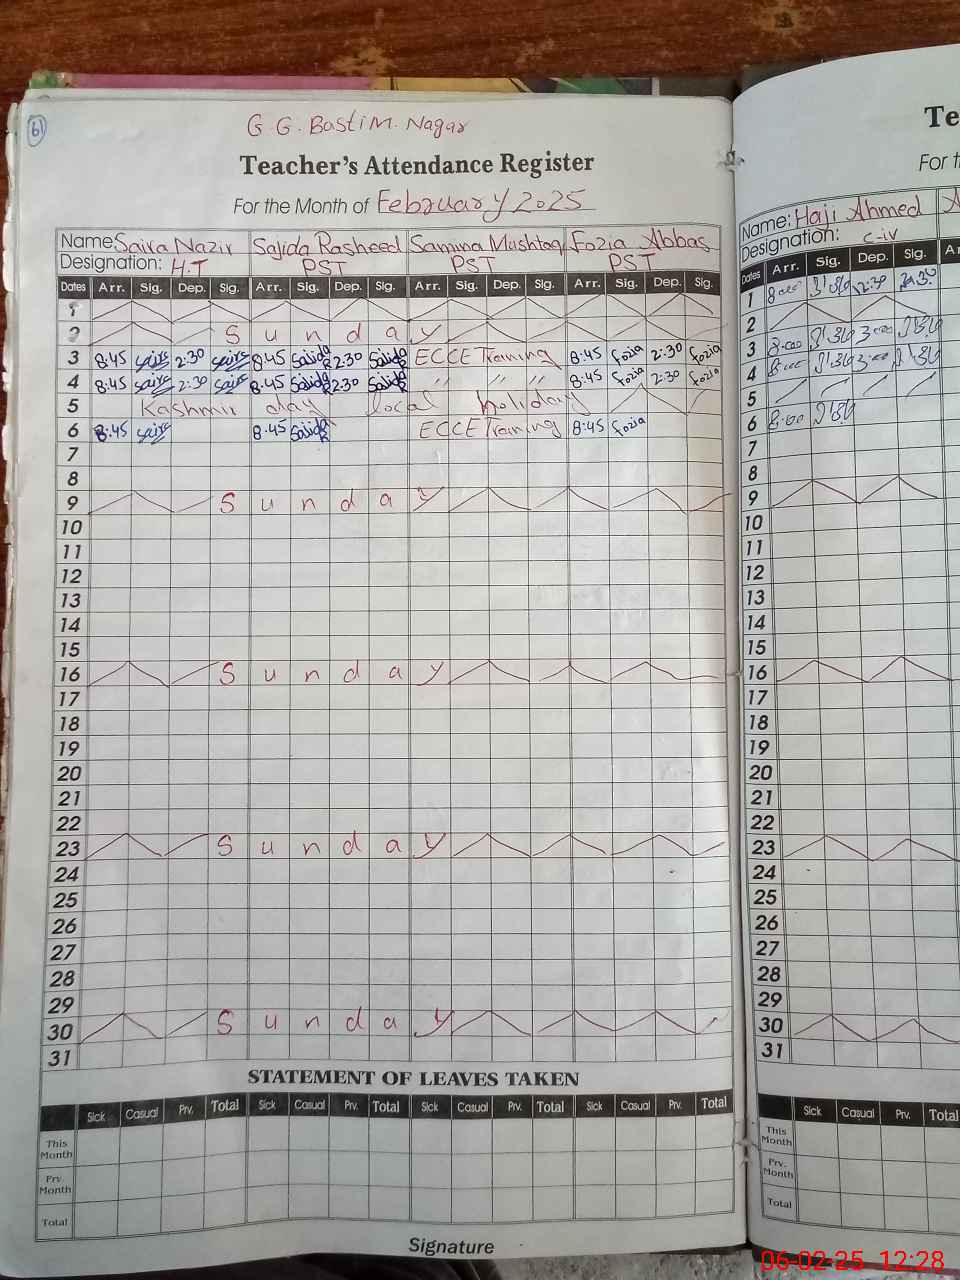 61
G.G. Basti M. Nagar
Teacher's Attendance Register
For the Month of February 2025
Name: Saira Nazir Sajida Rasheed Samina Mushtaq Fozia Abbas
Designation: H.T PST PST PST
Dates Arr. Sig. Dep. Sig. Arr. Sig. Dep. Sig. Arr. Sig. Dep. Sig. Arr. Sig. Dep. Sig.
1
2 Sunday
3 8:45 Saira 2:30 Saira 8:45 Sajida R 2:30 Sajida R ECCE Training 8:45 Fozia 2:30 Fozia
4 8:45 Saira 2:30 Saira 8:45 Sajida R 2:30 Sajida R " " " 8:45 Fozia 2:30 Fozia
5 Kashmir day local holiday
6 8:45 Saira 8:45 Sajida R ECCE Training 8:45 Fozia
7
8
9 Sunday
10
11
12
13
14
15
16 Sunday
17
18
19
20
21
22
23 Sunday
24
25
26
27
28
29
30 Sunday
31
STATEMENT OF LEAVES TAKEN
Sick Casual Prv. Total Sick Casual Prv. Total Sick Casual Prv. Total Sick Casual Prv. Total
This Month
Prv. Month
Total
Signature
Te
For t
Name: Haji Ahmed
Designation: C-iv
Dates Arr. Sig. Dep. Sig. Ar
1 8:00 2:30
2
3 8:00 3:00
4 8:00 3:00
5
6 8:00
7
8
9
10
11
12
13
14
15
16
17
18
19
20
21
22
23
24
25
26
27
28
29
30
31
Sick Casual Prv. Total
This Month
Prv. Month
Total
06-02-25 12:28